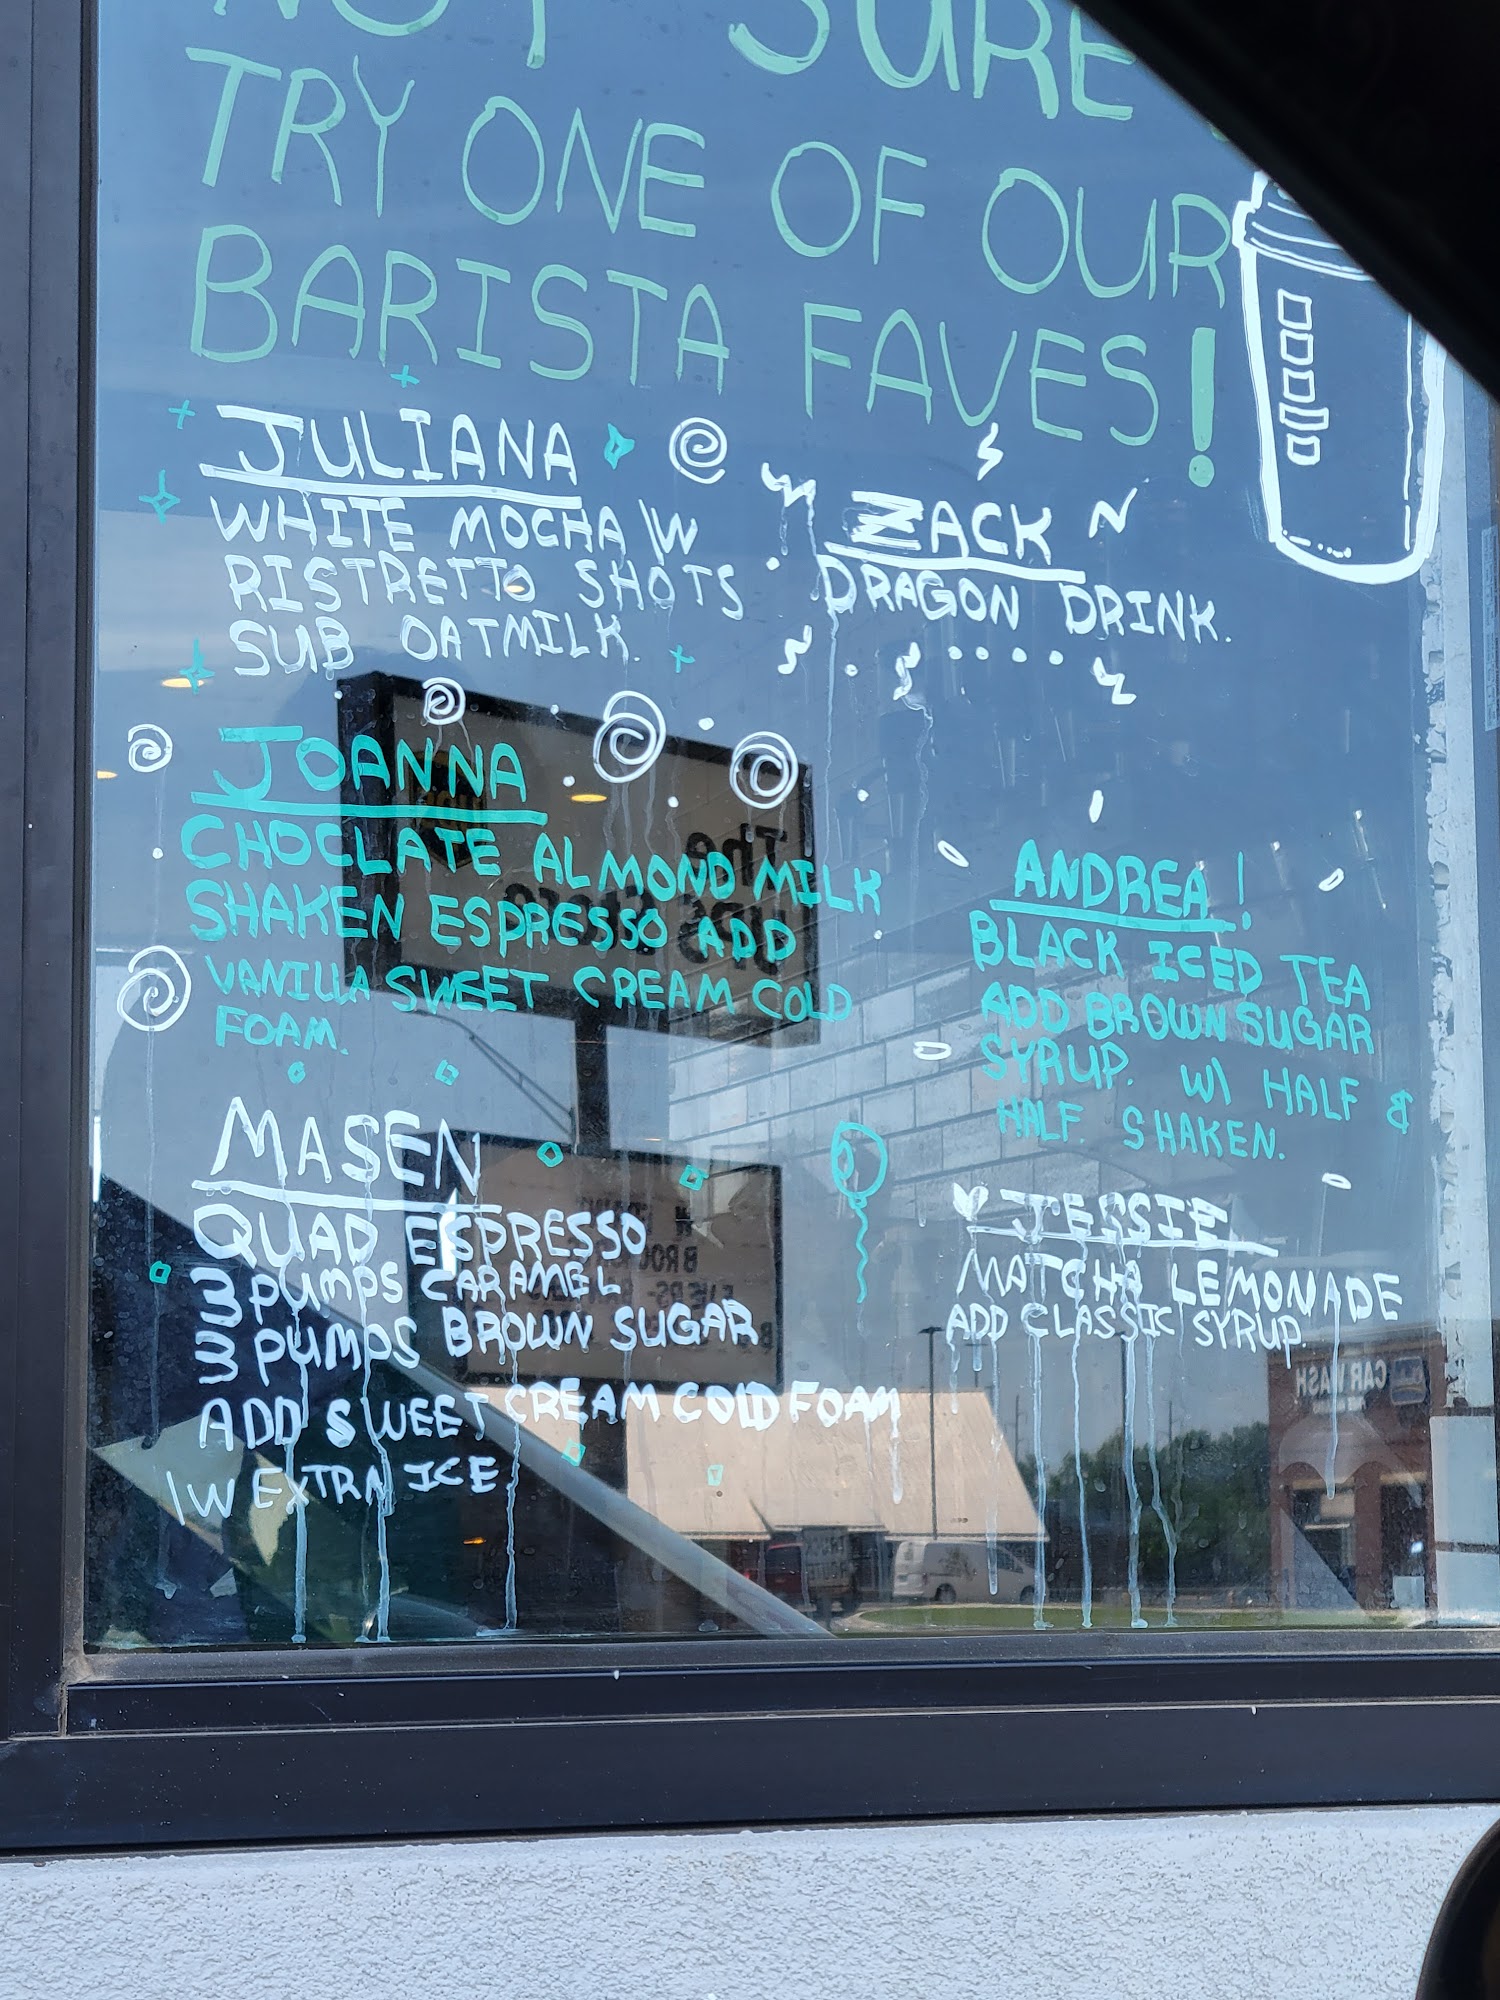 NOT SURE
TRY ONE OF OUR
BARISTA FAVES!
JULIANA
WHITE MOCHA \W
RISTRETTO SHOTS
SUB OATMILK.
ZACK
DRAGON DRINK.
JOANNA
CHOCLATE ALMOND MILK
SHAKEN ESPRESSO ADD
VANILLA SWEET CREAM COLD
FOAM.
ANDREA!
BLACK ICED TEA
ADD BROWN SUGAR
SYRUP. W\ HALF &
HALF. SHAKEN.
MASEN
QUAD ESPRESSO
3 PUMPS CARAMEL
3 PUMPS BROWN SUGAR
ADD SWEET CREAM COLD FOAM
\W EXTRA ICE
JESSIE
MATCHA LEMONADE
ADD CLASSIC SYRUP.
The
UPS Store
CAR WASH